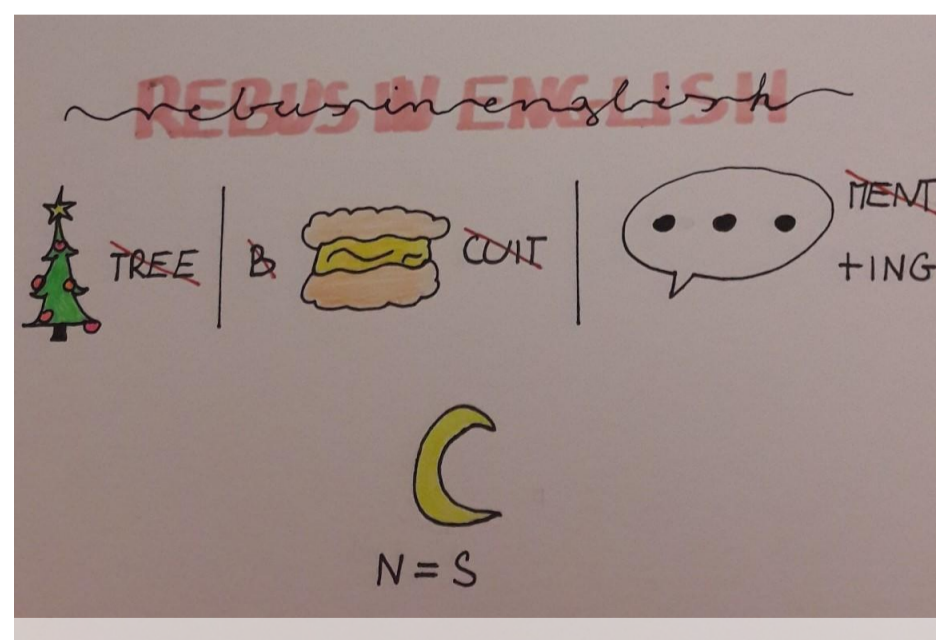 REBUS IN ENGLISH
rebus in english
TREE
B
CUIT
MENT
+ING
N = S